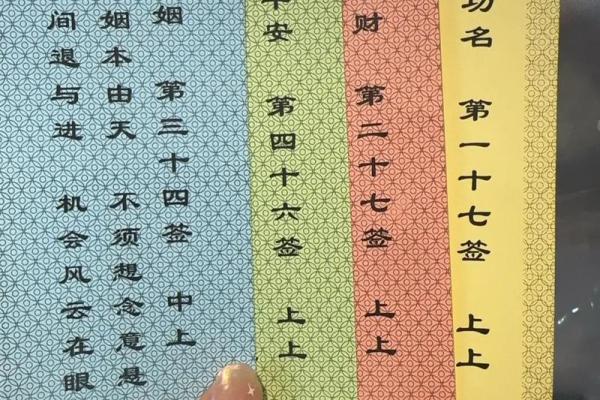 功名 第一十七签 上上
财 第二十七签 上上
平安 第四十六签 上上
姻 第三十四签 中上
姻本由天 不须想念意悬
间退与进 机会风云在眼